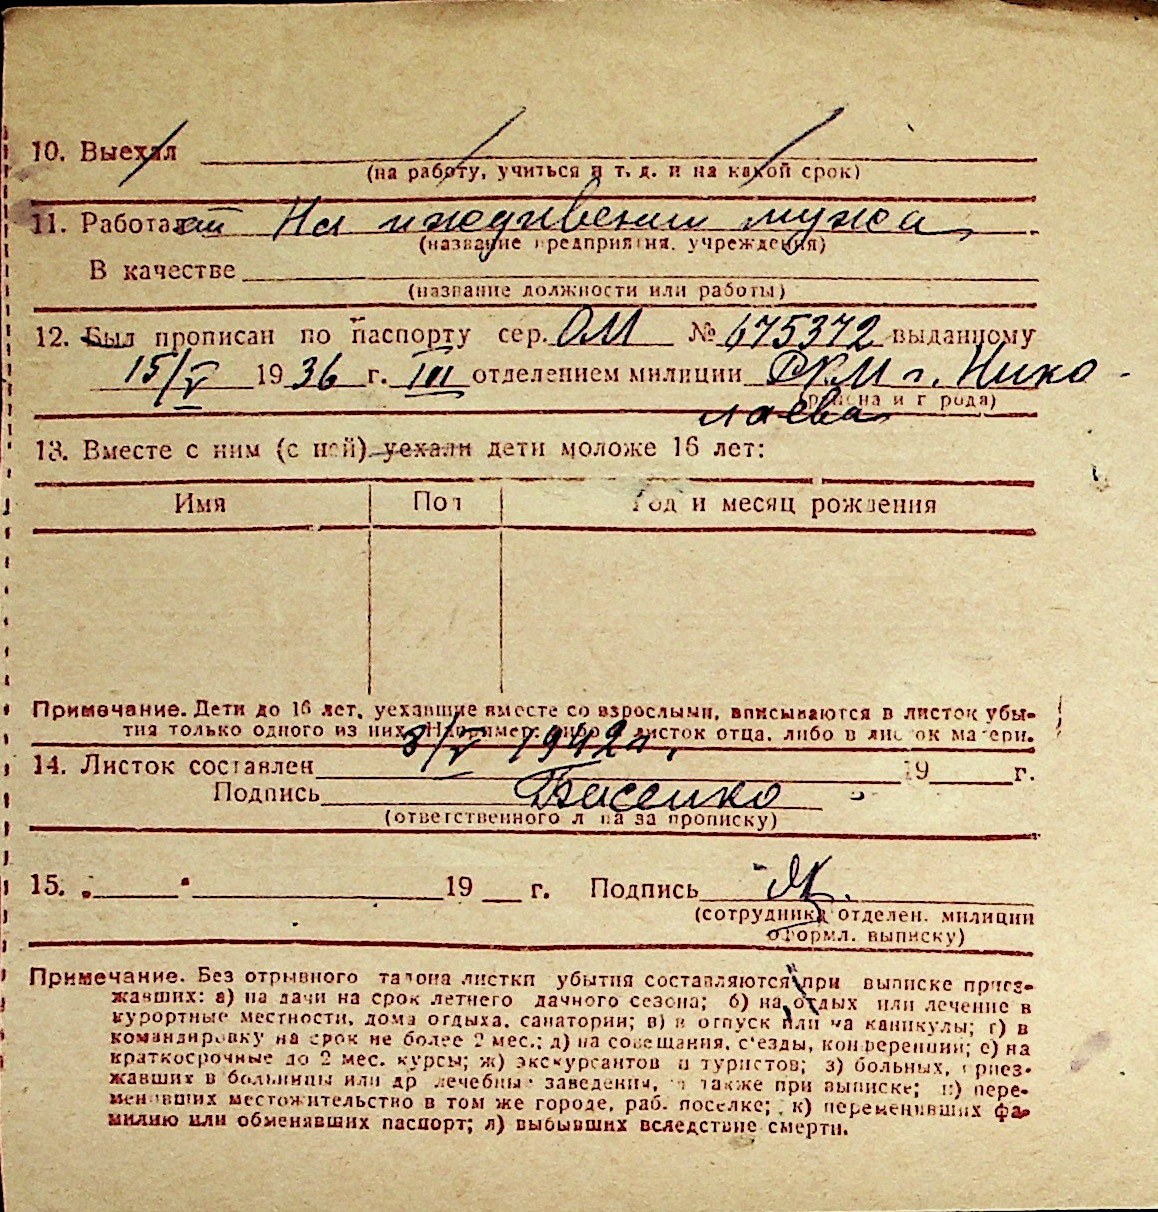 10. Выехал
(на работу, учиться и т. д. и на какой срок)
11. Работает На иждивении мужа
(название предприятия, учреждения)
В качестве
(название должности или работы)
12. Был прописан по паспорту сер. ОМ № 675372 выданному
15/V 1936 г. III отделением милиции РКМ г. Нико-
(района и города)
лаева
13. Вместе с ним (с ней) уехали дети моложе 16 лет:
Имя Пол Год и месяц рождения
Примечание. Дети до 16 лет, уехавшие вместе со взрослыми, вписываются в листок убы-
тия только одного из них. Например: либо в листок отца, либо в листок матери.
8/V 1942 г.
14. Листок составлен 19 г.
Подпись
(ответственного лица за прописку)
15. „ " 19 г. Подпись
(сотрудника отделен. милиции
оформл. выписку)
Примечание. Без отрывного талона листки убытия составляются при выписке приез-
жавших: а) на дачи на срок летнего дачного сезона; б) на отдых или лечение в
курортные местности, дома отдыха, санатории; в) в отпуск или на каникулы; г) в
командировку на срок не более 2 мес.; д) на совещания, с'езды, конференции; е) на
краткосрочные до 2 мес. курсы; ж) экскурсантов и туристов; з) больных, приез-
жавших в больницы или др лечебные заведения, а также при выписке; и) пере-
менивших местожительство в том же городе, раб. поселке; к) переменивших фа-
милию или обменявших паспорт; л) выбывших вследствие смерти.